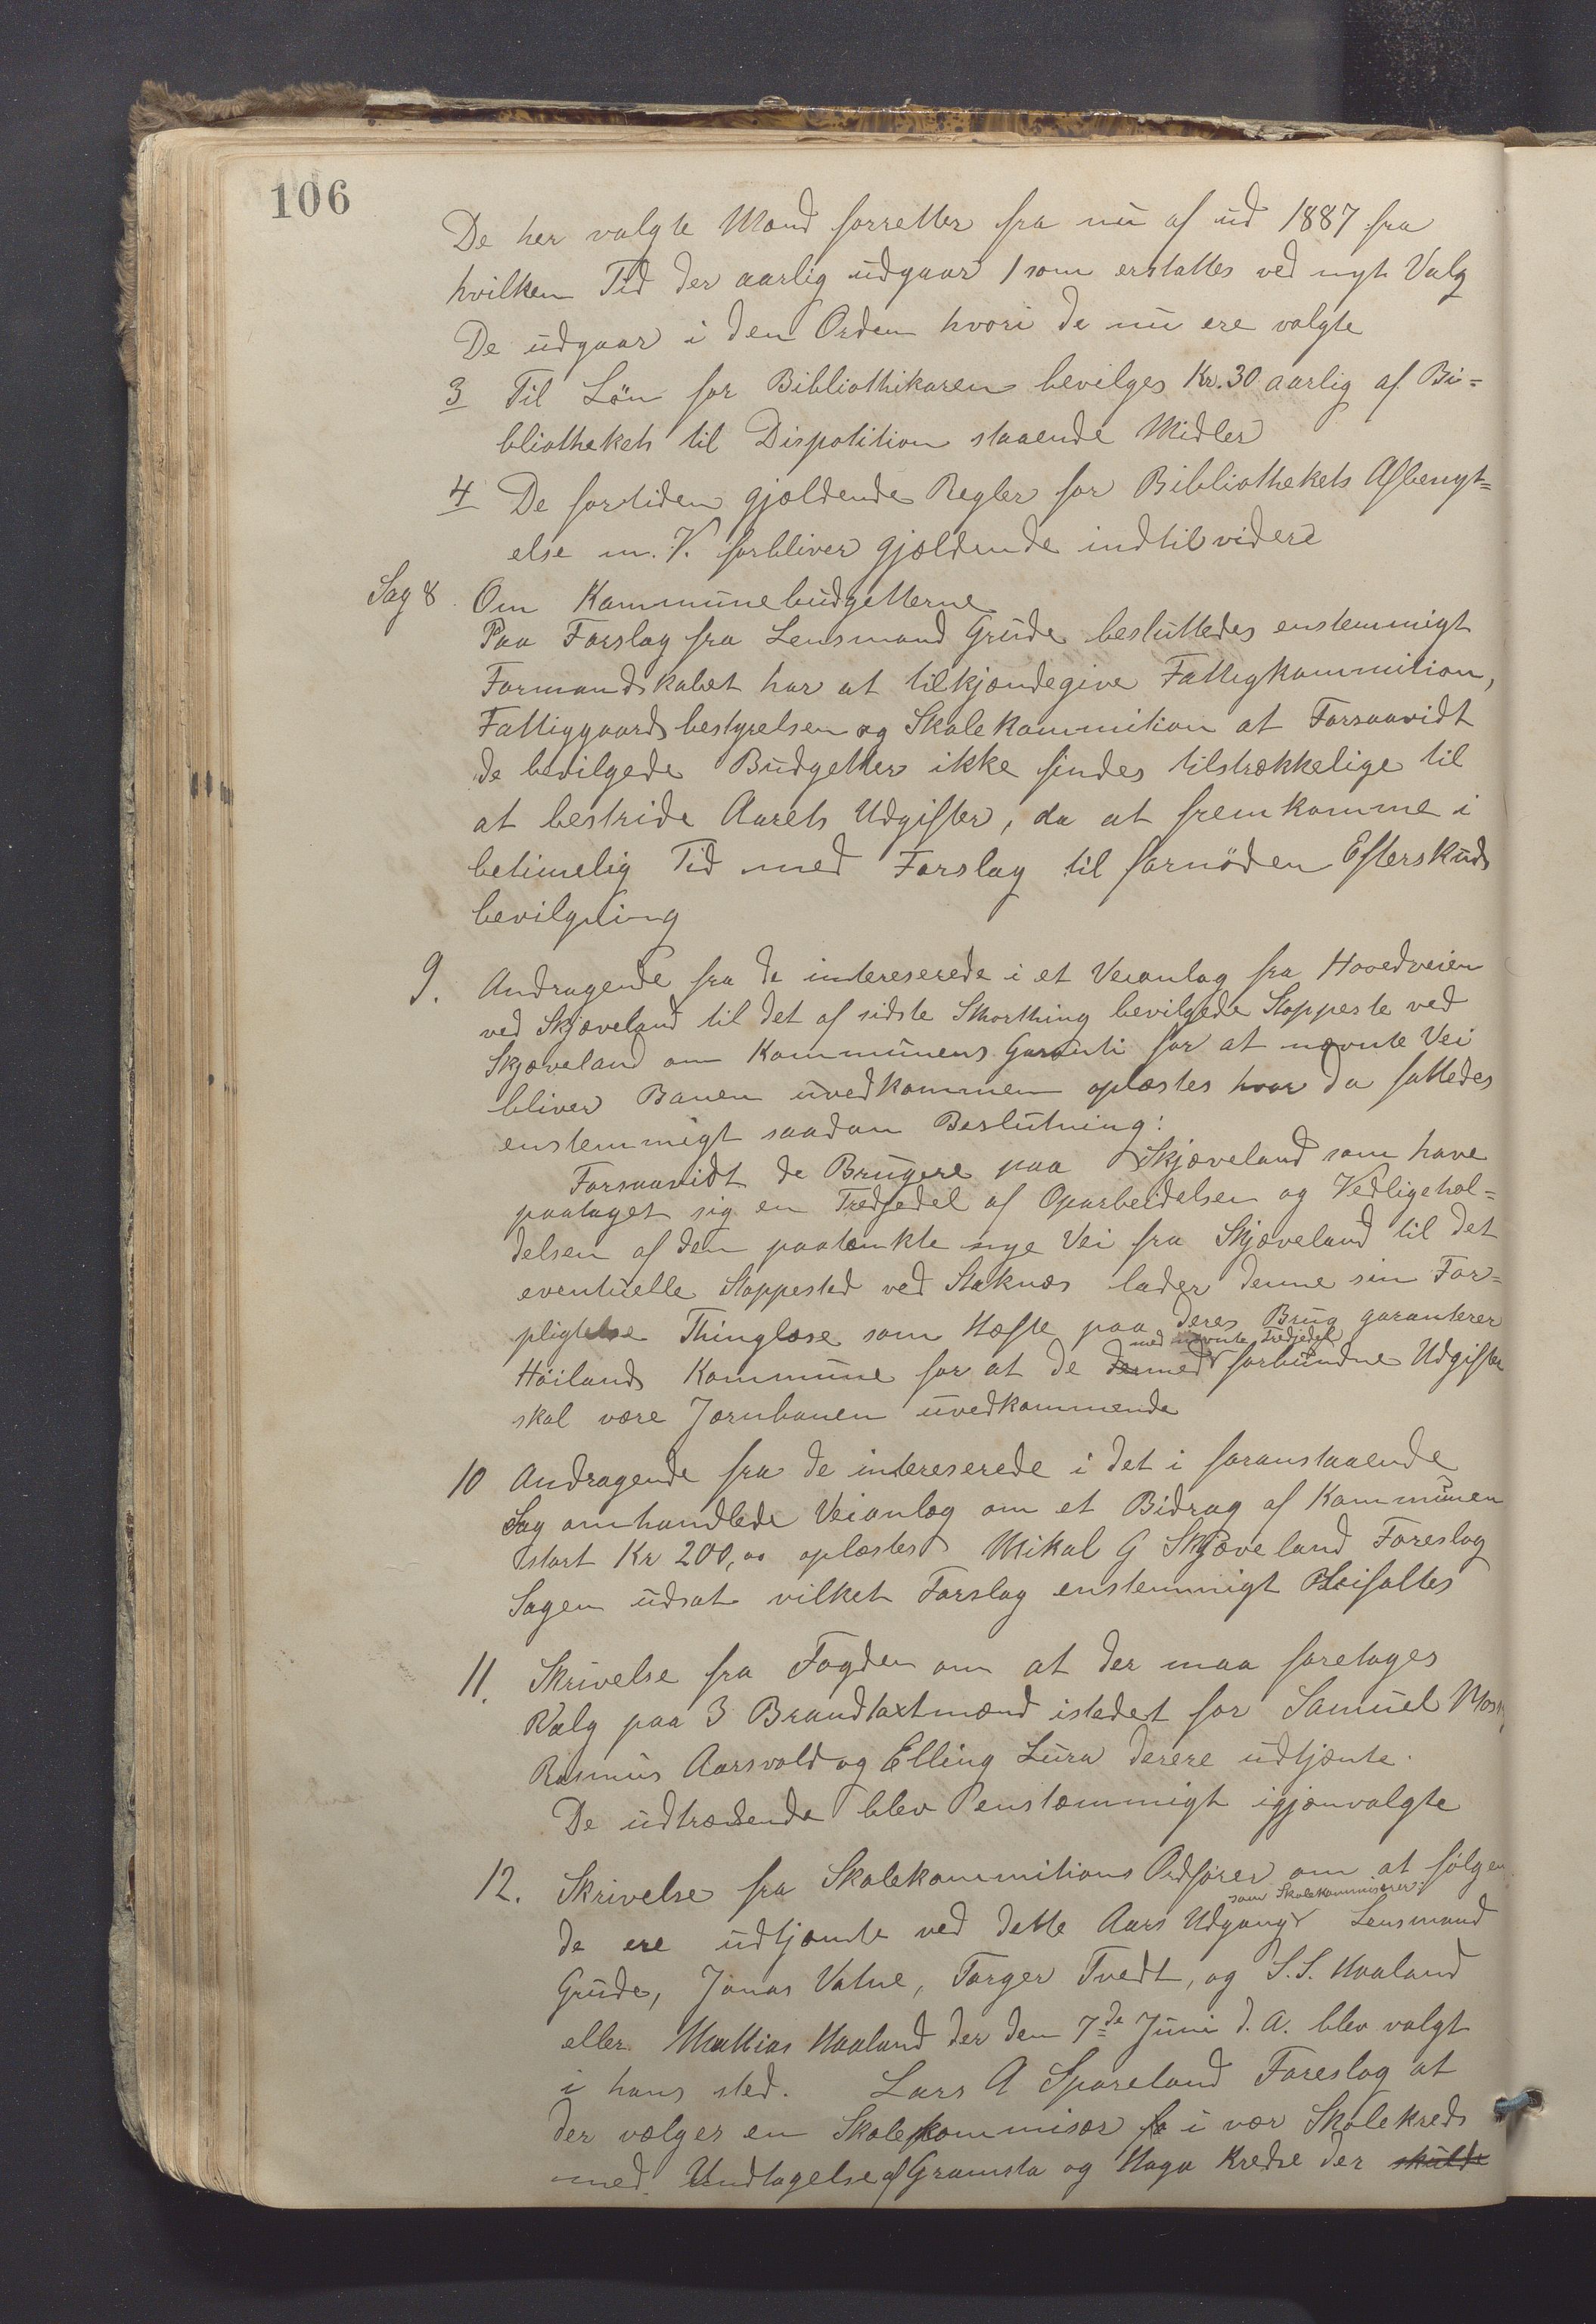 106
De her valgte Mænd forretter fra nu af ud 1887 fra
hvilken Tid der aarlig udgaar 1 som erstattes ved nyt Valg
De udgaar i den Orden hvori de nu ere valgte
3 Til Lön for Bibliothikaren bevilges Kr. 30 aarlig af Bi=
bliothekets til Dispotition staaende Midler
4 De fortiden gjældende Regler for Bibliothekets Afbenyt=
else m. V. forbliver gjældende indtil videre
Sag 8. Om Kommunebudgetterne
Paa Forslag fra Lensmand Grude besluttedes enstemmigt
Formandskabet har at tilkjændegive Fattigkommition,
Fattiggaardsbestyrelsen og Skolekommition at Forsaavidt
de bevilgede Budgetter ikke findes tilstrækkelige til
at bestride Aarets Udgifter, da at fremkomme i
betimelig Tid med Forslag til fornöden Efterskuds
bevilgning
9. Andragende fra de intereserede i et Veianlæg fra Hovedveien
ved Skjæveland til det af sidste Storthing bevilgede Stoppeste ved
Skjæveland om Kommunens Garanti for at nævnte Vei
bliver Banen uvedkommen oplæstes hvor da fattedes
enstemmigt saadan Beslutning:
Forsaavidt de Brugere paa Skjæveland som have
paataget sig en Tredjedel af Oparbeidelsen og Vedligehol=
delsen af den paatænkte nye Vei fra Skjæveland til det
eventuelle Stoppested ved Stoknes lader denne sin For=
pligtelse Thinglæse som Hæfte paa deres Brug garanterer
med nævnte Tredjedel
Höilands Kommune for at de dermed forbundne Udgifter
skal være Jærnbanen uvedkommende
10 Andragende fra de intereserede i det i foranstaaende
Sag omhandlede Veianlæg om et Bidrag af Kommunen
stort Kr 200,00 oplæstes Mikal G Skjæveland Foreslog
Sagen udsat vilket Forslag enstemmigt Beifaltes
11. Skrivelse fra Fogden om at der maa foretages
Valg paa 3 Brandtaxtmænd istedet for Samuel
Rasmus Aarsvold og Elling Lura derere udtjænte.
De udtrædende blev enstæmmigt igjænvalgte
12. Skrivelse fra Skolekommitions Ordfører om at følgen
som Skolekommisærer:
de ere udtjænte ved dette Aars Udgang Lensmand
Grude, Jonas Vatne, Torger Tvedt, og S. S. Haaland
eller Mathias Haaland der den 7de Juni d. A. blev valgt
i hans sted. Lars A Sporeland Foreslog at
der vælges en Skolekommisær fo i vær Skolekreds
med Undtagelse af Gramsta og Haga Kredse der skulde